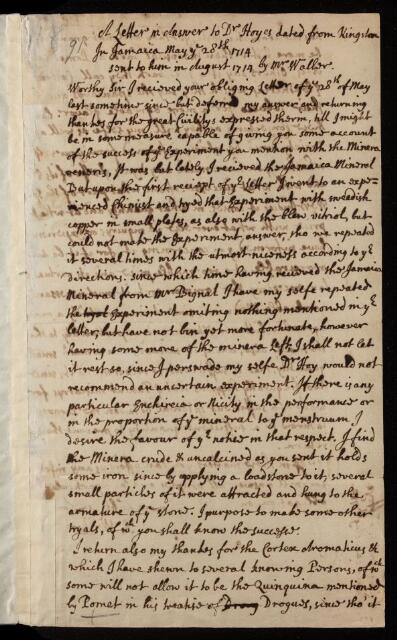 91
A Letter in Answer to Dr Hoyes dated from Kingston
In Jamaica May ye 28th 1714
sent to him in August 1714 by Mr Waller.
Worthy Sir I recieved your obliging Letter of ye 28th of May
last sometime since but deferred my answer and returning
thankes for the great Civilitys expressed therin, till I might
be in some measure capable of giving you some account
of the success of ye Experiment you mention with the Minera
veneris, It was but lately I recieved the Jamaica Mineral
But upon the first reciept of ye Letter I went to an expe=
rienced Chimist and tryed that Experiment with swedish
copper in small plates, as also with the Blew vitriol, but
could not make the Experiment answer, tho we repeated
it several times with the utmost niceness according to ye
directions. since which time having recieved the Jamaica
Mineral from Mr Bignal I have my selfe repeated
the Experiment omiting nothing mentioned in ye
Letter, but have not bin yet more fortunate, however
having some more of the minera left I shall not let
it rest so, since I perswade my selfe Dr Hoy would not
recommend an uncertain experiment. If there is any
particular Encheiria or Nicity in the performance or
in the proportion of ye mineral to ye menstruum I
desire the favour of yr notice in that respect. I find
the Minera crude & uncalcined as you sent it holds
some iron since by applying a loadstone to it, several
small particles of it were attracted and hung to the
armature of ye stone. I purpose to make some other
tryals, of wch you shall know the successe.
I return also my thankes for the Cortex Aromaticus &c
which I have shewn to several knowing Persons, of wch
some will not allow it to be the Quinquina mentioned
by Pomet in his treatise of Drogues, since tho' it